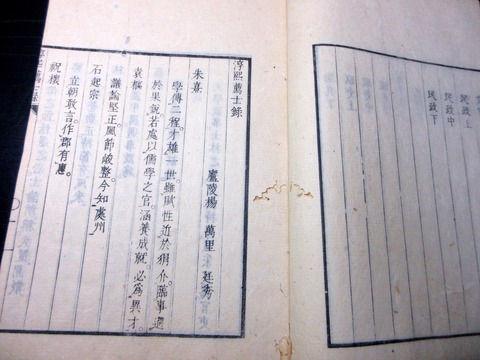 民政上
民政中
民政下
淳熙薦士錄
廬陵楊萬里廷秀
朱熹
學傳二程。才雄一世。雖賦性近於狷介。臨事過
於果銳。若處以儒學之官。涵養成就。必為異才。
袁樞
議論堅正。風節峻整。今知處州
石起宗
立朝敢言。作郡有惠。
祝櫰